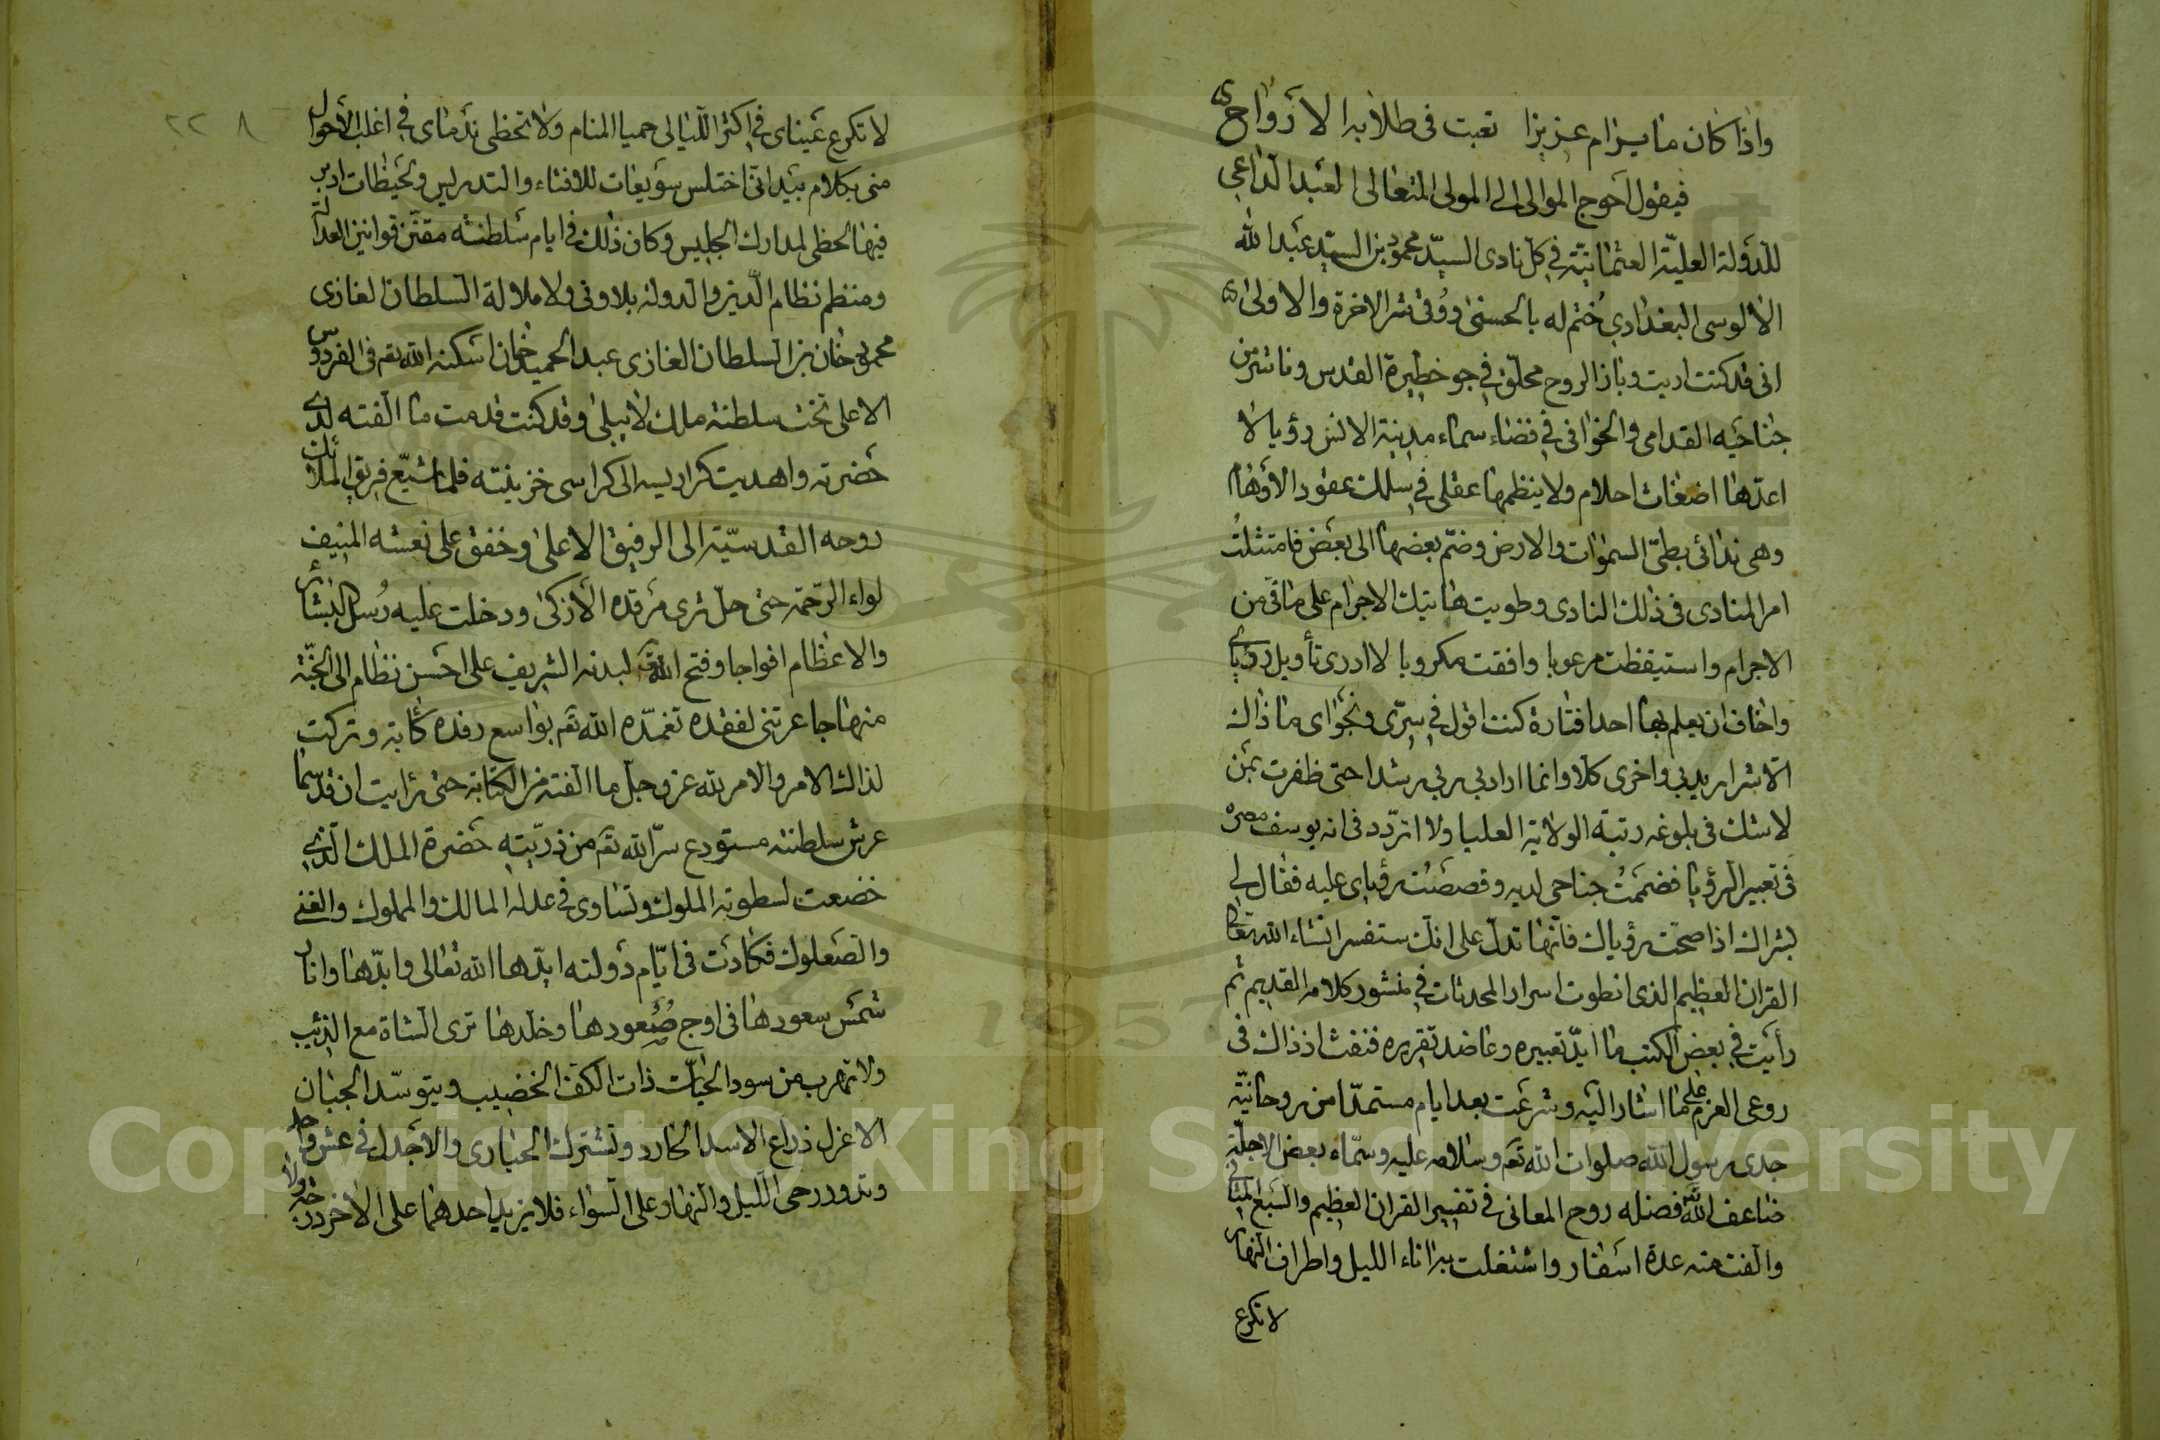 واذا كان ما يرام عزيزا تعبت فى طلابه الازواح
فيقول احوج الموالى الى المولى المتعالى العبد الداعى
للدولة العلية العثمانية فى كل نادى السيد محمود بن السيد عبد الله
الالوسى البغدادى ختم له بالحسنى ووقى شر الاخرة والاولى
انى قد كنت اريت وباز الروح محلق فى جو خطيرة القدس وناشر من
جناحيه القدامى والخوافى فى فضاء سماء مدينة الانس رؤيا لا
اعدها اضغاث احلام ولا ينظمها عقلى فى سلك عقود الاوهام
وهى ندائى بطى السموات والارض وضم بعضها الى بعض فامتثلت
امر المنادى فى ذلك النادى وطويت هاتيك الاجرام على ما فى من
الاجرام واستيقظت مرعوبا وافقت مكروبا لا ادرى تأويل رؤياى
واخاف ان يعلم بها احد افتارة كنت اقول فى سرى ونجواى ما ذاك
الا شر اريد بى واخرى كلا وانما اراد بى ربى رشدا حتى ظفرت بمن
لا شك فى بلوغه رتبة الولاية العليا ولا اتردد فى انه يوسف مصره
فى تعبير الرؤيا فضممت جناحى لديه وقصصت رؤياى عليه فقال لى
بشراك اذا صحت رؤياك فانها تدل على انك ستفسر انشاء الله تعالى
القران العظيم الذى انطوت اسرار المحدثات فى منشور كلامه القديم ثم
رأيت فى بعض الكتب ما ايد تعبيره وعاضد تقريره فنفث اذ ذاك فى
روعى العزم على ما اشار اليه وشرعت بعد ايام مستمدا من روحانية
جدى رسول الله صلوات الله تع وسلامه عليه وسماه بعض الاجلة
ضاعف الله تع فضله روح المعانى فى تفسير القران العظيم والسبع المثانى
والفت منه عدة اسفار واشتغلت به اناء الليل واطراف النهار
لا تكرع
٢٢٨
لا تكرع عيناى فى اكثر الليالى حميا المنام ولا تحظى ندماى فى اغلب الاحوال
منى بكلام بيد انى اختلس سويعات للافتاء والتدريس ولحيظات ادير
فيها لحظى لمدارك الجليس وكان ذلك فى ايام سلطنة مقنن قوانين العدالة
ومنظم نظام الدين والدولة بلا ونى ولا ملالة السلطان الغازى
محمود خان بن السلطان الغازى عبد الحميد خان اسكنه الله تع فى الفردوس
الاعلى تخت سلطنة ملك لا يبلى وقد كنت قدمت ما الفته لدى
حضرته واهديت كراريسه الى كراسى خزينته فلما شيع فريق الملائك
روحه القدسية الى الرفيق الاعلى وخفق على نعشه المنيف
لواء الرحمة حتى حل ثرى مرقده الازكى ودخلت عليه رسل البشائر
والاعظام افواجا وفتح الله تع لبدنه الشريف على احسن نظام الى الجنة
منهاجا عرتنى لفقده تغمده الله تع بواسع رفده كآبة وتركت
لذاك الامر والامر لله عز وجل ما الفته من الكتابة حتى رايت ان قد سما
عرش سلطنته مستودع سر الله تع من ذريته حضرة الملك الذى
خضعت لسطوته الملوك وتساوى فى عدله المالك والمملوك والغنى
والصعلوك فكادت فى ايام دولته ايدها الله تعالى وابدها وانار
شمس سعودها فى اوج صعودها وخلدها ترى الشاة مع الذئب
ولا تهرب من سود الحيات ذات الكف الخضيب ويتوسد الجبان
الاعزل ذراع الاسد الحارد وتشترك الحبارى والاجدل فى عش واحد
وتدور رحى الليل والنهار على السواء فلا يزيد احدهما على الاخر درجة ولا